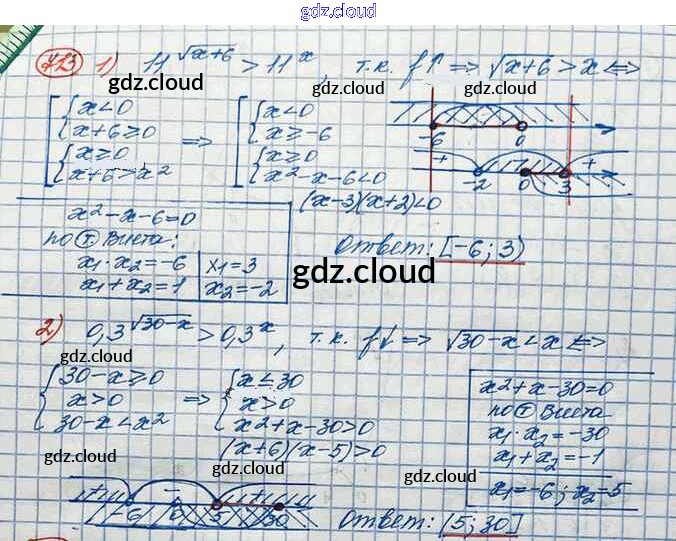 gdz.cloud
723 1) 11^√x+6 > 11^x, т.к. f↑ => √x+6 > x <=>
gdz.cloud
gdz.cloud
[ { x<0 => [ { x<0
x+6≥0 x≥-6
{ x≥0 { x≥0
x+6>x² x²-x-6<0
(x-3)(x+2)<0
-6 0
+ - +
-2 0 3
x²-x-6=0
по Т Виета:
x₁·x₂=-6 | x₁=3
x₁+x₂=1 | x₂=-2
Ответ: [-6; 3)
gdz.cloud
gdz.cloud
2) 0,3^√30-x > 0,3^x, т.к. f↓ => √30-x < x <=>
gdz.cloud
gdz.cloud
{ 30-x≥0 => { x≤30
x>0 x>0
30-x<x² x²+x-30>0
(x+6)(x-5)>0
x²+x-30=0
по Т Виета
x₁·x₂=-30
x₁+x₂=-1
x₁=-6; x₂=5
gdz.cloud
gdz.cloud
gdz.cloud
+ - +
-6 0 5 30
Ответ: (5; 30]
gdz.cloud
gdz.cloud